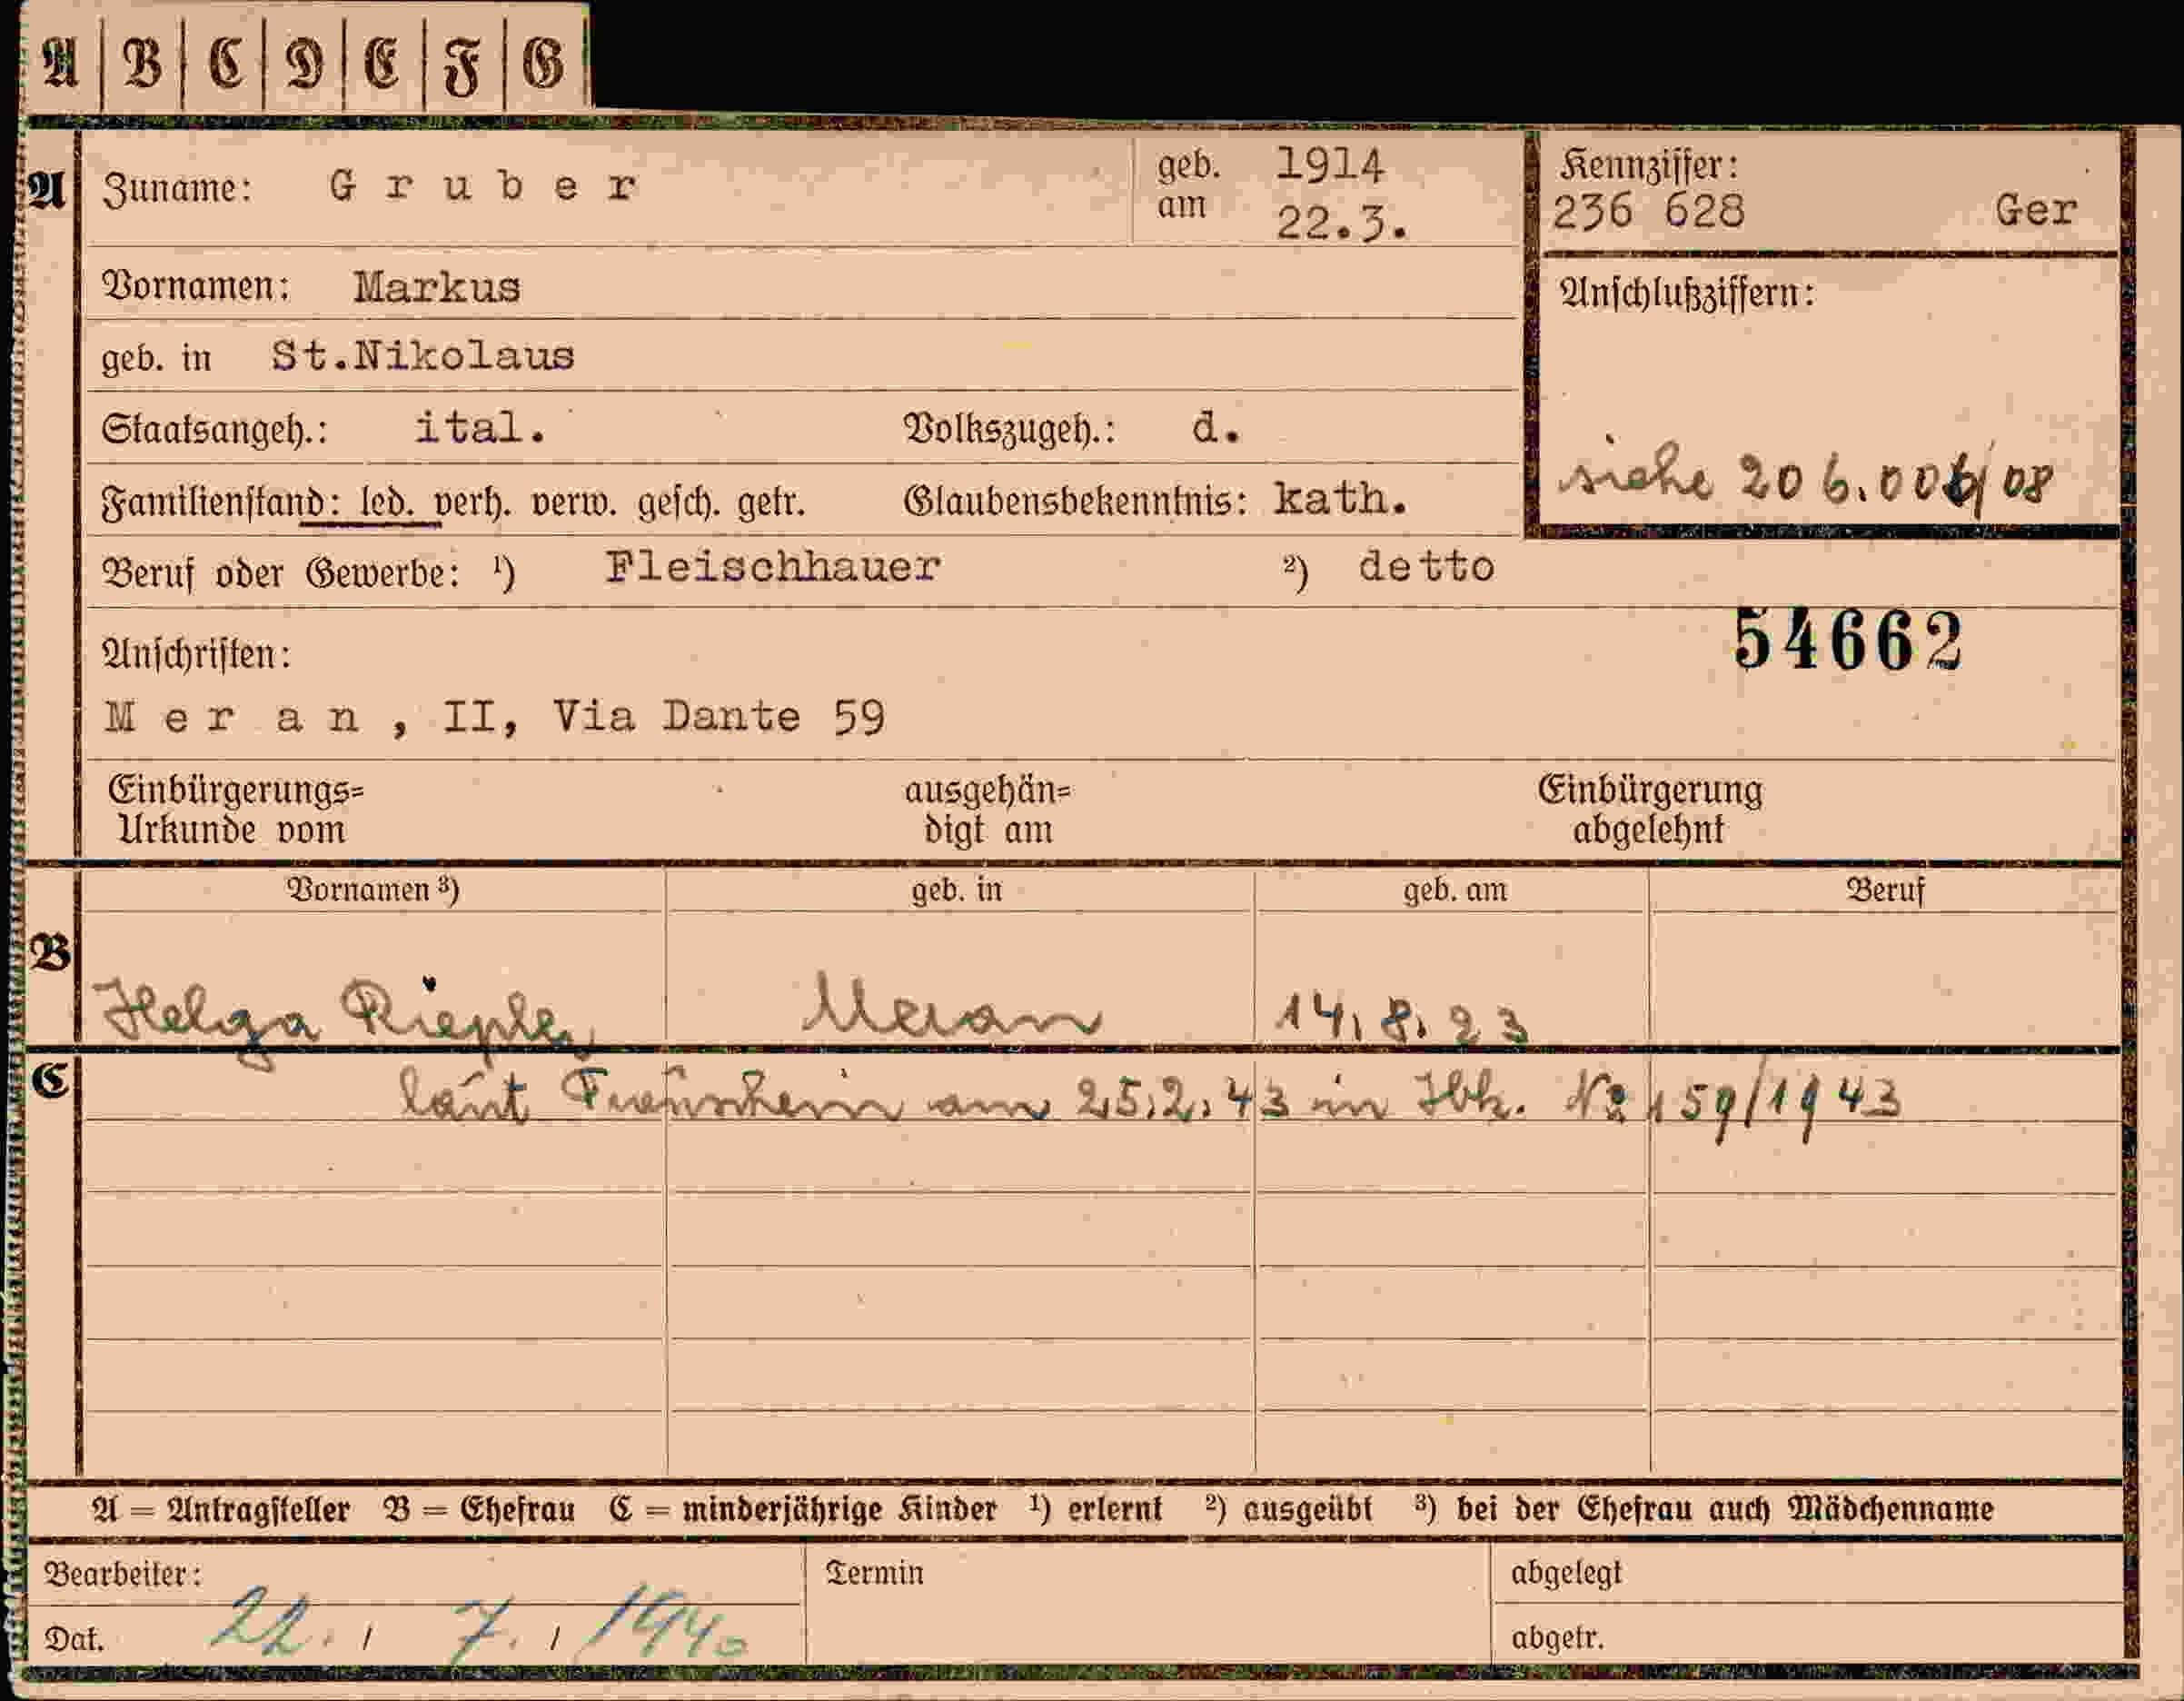 A B C D E F G
A Zuname: Gruber geb. am 1914 22.3. Kennziffer: 236 628 Ger
Vornamen: Markus Anschlußziffern:
geb. in St.Nikolaus
Staatsangeh.: ital. Volkszugeh.: d.
Familienstand: led. verh. verw. gesch. getr. Glaubensbekenntnis: kath. siehe 206.006/08
Beruf oder Gewerbe: ¹) Fleischhauer ²) detto
Anschriften: 54662
Meran, II, Via Dante 59
Einbürgerungs= ausgehän= Einbürgerung
Urkunde vom digt am abgelehnt
Vornamen ³) geb. in geb. am Beruf
B Helga Riepler Meran 14.8.23
C laut Trauschein am 25.2.43 in Ibk. No 159/1943
A = Antragsteller B = Ehefrau C = minderjährige Kinder ¹) erlernt ²) ausgeübt ³) bei der Ehefrau auch Mädchenname
Bearbeiter: Termin abgelegt
Dat. 22. / 7. / 1940 abgetr.